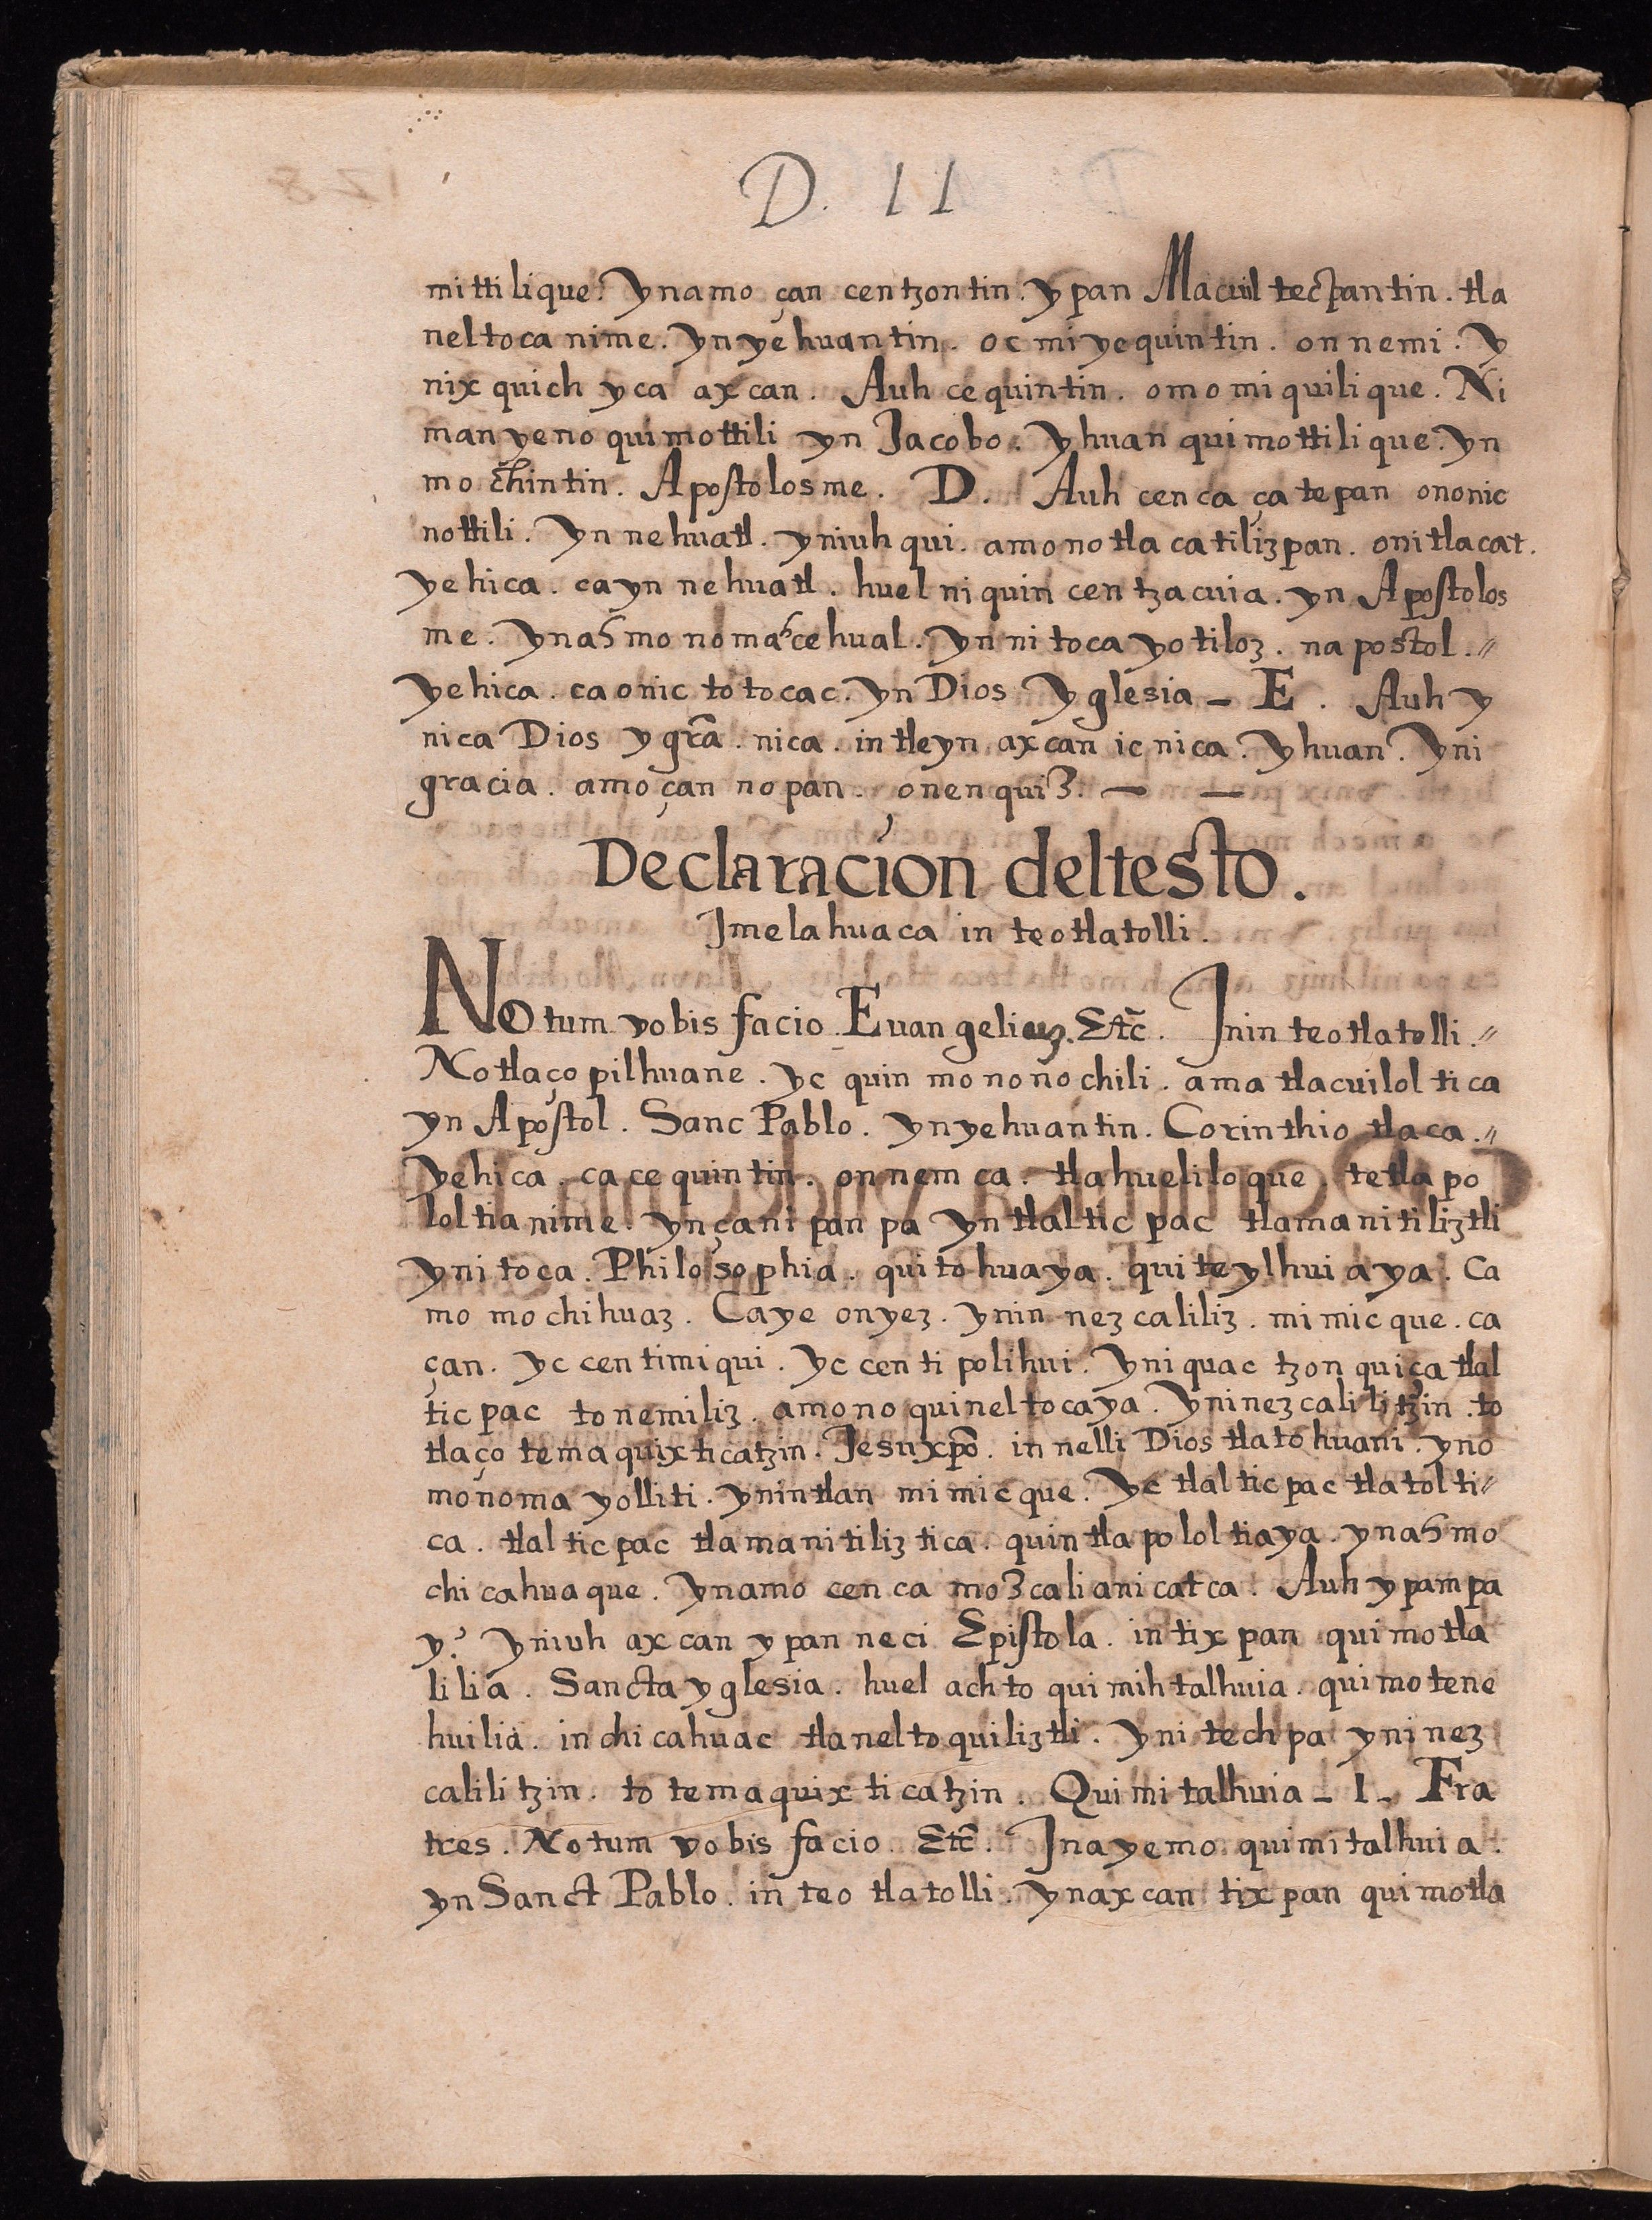 D. 11
mittilique. ynamo çan centzontin. ypan Macuil tecpantin. tla
neltoca nime. ynyehuantin. oc miyequintin. onnemi. y
nixquich yca axcan. Auh cequintin. omomiquilique. Ni
man yeno quimottili yn Jacobo. yhuan quimottilique. yn
mochintin. Apostolosme. D. Auh cenca çatepan ononic
nottili. yn nehuatl. yniuhqui. amonotlacatilizpan. onitlacat.
yehica. cayn nehuatl. huel niquin centzacuia. yn Apostolos
me. ynahmo nomahcehual. yn nitocayotiloz. napostol. //
yehica. caonic totocac. yn Dios Yglesia _ E. Auh y
nica Dios ygrãa. nica. intleyn axcan ic nica. yhuan. yni
gracia. amoçan nopan. onenquiz. — —
Declaraçion deltesto.
Jmelahuaca in teotlatolli.
Notum vobis facio Euangeliuz. Etc̃. Jnin teotlatolli. //
Notlaço pilhuane. yc quin mononochili. amatlacuiloltica
yn Apostol. Sanc Pablo. ynyehuantin. Corinthio tlaca. //
yehica. cacequintin. onnemca. tlahueliloque. tetlapo
loltianime. ynçanipanpa yn tlalticpac tlamanitiliztli
ynitoca. Philosophia. quitohuaya. quiteylhuiaya. Ca
mo mochihuaz. Caye onyez. ynin nezcaliliz. mimicque. ca
çan. yc centimiqui. yc centipolihui. yniquac tzonquiça tlal
ticpac tonemiliz. amono quineltocaya. yninezcalilitzin. to
tlaço temaquixticatzin. Jesuxp̃o. in nelli Dios tlatohuani. yno
monoma yolliti. ynintlan mimicque. yc tlalticpac tlatolti//
ca. tlalticpac tlamanitiliztica. quintlapololtiaya. ynahmo
chicahuaque. ynamo cenca mozcalianicatca. Auh ypampa
y? yniuh axcan ypan neci Epistola. intixpan quimotla
lilia. Sancta yglesia. huel achto quimihtalhuia. quimotene
huilia. inchicahuac tlaneltoquiliztli. ynitechpa yninez
calilitzin. totemaquixticatzin. Quimitalhuia _ 1 _ Fra
tres. Notum vobis facio. Etc̃. Jnayemo quimitalhuia.
yn Sanct Pablo. in teotlatolli. ynaxcan tixpan quimotla